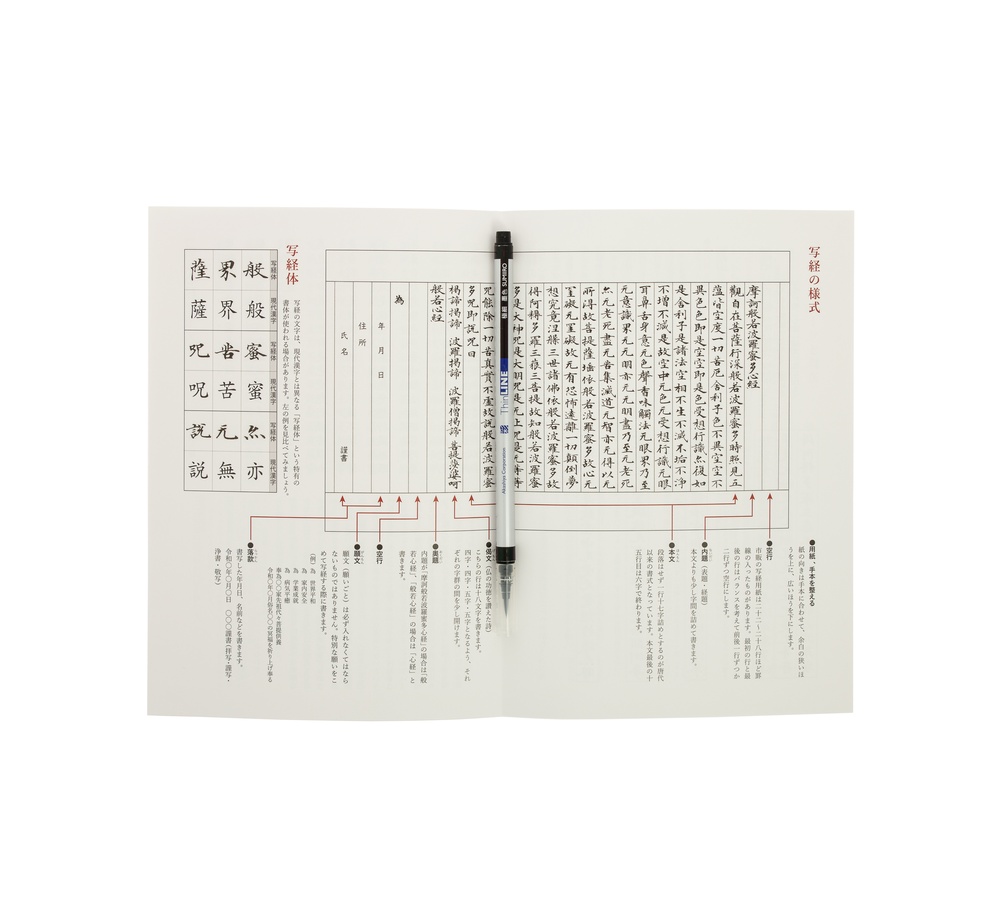 写経の様式
摩訶般若波羅蜜多心経
観自在菩薩行深般若波羅蜜多時照見五
蘊皆空度一切苦厄舎利子色不異空空不
異色色即是空空即是色受想行識亦復如
是舎利子是諸法空相不生不滅不垢不浄
不増不減是故空中无色无受想行識无眼
耳鼻舌身意无色聲香味觸法无眼界乃至
无意識界无无明亦无无明盡乃至无老死
亦无老死盡无苦集滅道无智亦无得以无
所得故菩提薩埵依般若波羅蜜多故心无
罣礙无罣礙故无有恐怖遠離一切顛倒夢
想究竟涅槃三世諸佛依般若波羅蜜多故
得阿耨多羅三藐三菩提故知般若波羅蜜
多是大神咒是大明咒是无上咒是无等等
咒能除一切苦真實不虚故説般若波羅蜜
多咒即説咒曰
掲諦掲諦 波羅掲諦 波羅僧掲諦 菩提娑婆呵
般若心経
為
年 月 日
住所
氏名 謹書
●用紙、手本を整える
紙の向きは手本に合わせて、余白の狭いほ
うを上に、広いほうを下にします。
●空行
市販の写経用紙は二十二〜二十八行ほど罫
線の入ったものがあります。最初の行と最
後の行はバランスを考えて前後一行ずつか
二行ずつ空行にします。
●内題(表題・経題)
本文よりも少し字間を詰めて書きます。
●本文
段落はせず一行十七字詰めとするのが唐代
以来の書式となっています。本文最後の十
五行目は六字で終わります。
●偈文(仏の功徳を讃えた詩)
こちらの行は十八文字を書きます。
四字・四字・五字・五字となるよう、それ
ぞれの字群の間を少し開けます。
●奥題
内題が「摩訶般若波羅蜜多心経」の場合は「般
若心経」、「般若心経」の場合は「心経」と
書きます。
●空行
●願文
願文(願いごと)は必ず入れなくてはなら
ないものではありません。特別な願いをこ
めて写経する際に書きます。
(例)為 世界平和
為 家内安全
為 学業成就
為 病気平癒
奉為〇〇家先祖代々菩提供養
令和〇年〇月俗名〇〇の冥福を祈り上げ奉る
●落款
書写した年月日、名前などを書きます。
令和〇年〇月〇日 〇〇〇謹書(拝写・謹写・
浄書・敬写)
写経体
写経の文字は、現代漢字とは異なる「写経体」という特有の
書体が使われる場合があります。左の例を見比べてみましょう。
写経体 現代漢字 写経体 現代漢字 写経体 現代漢字
般 般 蜜 蜜 亦 亦
界 界 苦 苦 无 無
薩 薩 咒 呪 説 説